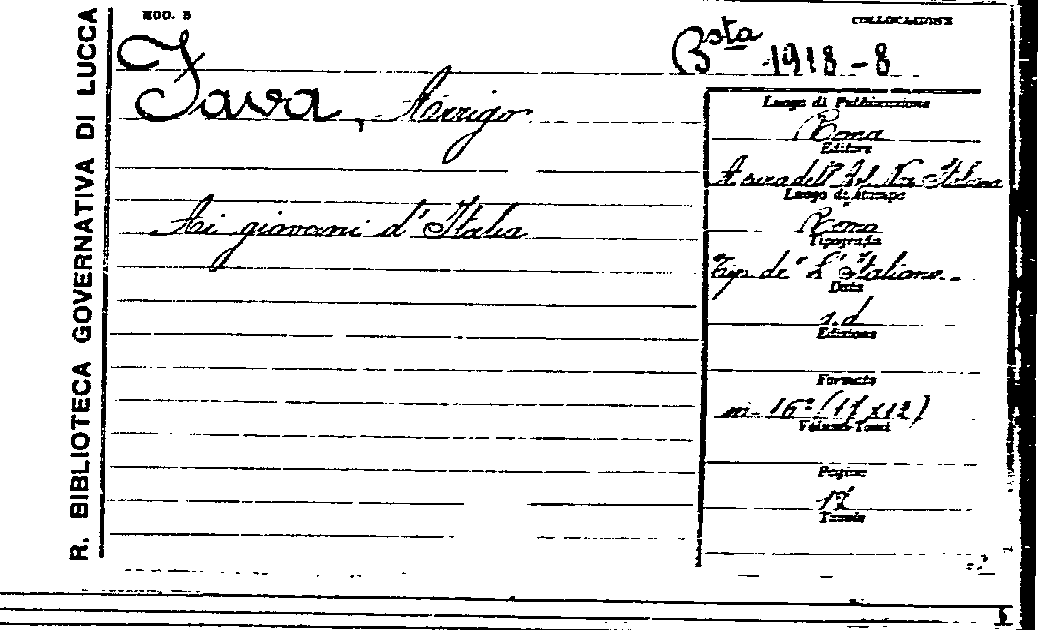 MOD. B
COLLOCAZIONE
Bsta 1918-8
R. BIBLIOTECA GOVERNATIVA DI LUCCA
Java, Arrigo
Ai giovani d'Italia
Luogo di Pubblicazione
Roma
Editore
A cura dell'
Luogo di Stampa
Roma
Tipografia
Tip. de "L'Italiano
Data
s.d
Edizione
Formato
in-16º (17x12)
Volume-Tomi
Pagine
17
Tavole